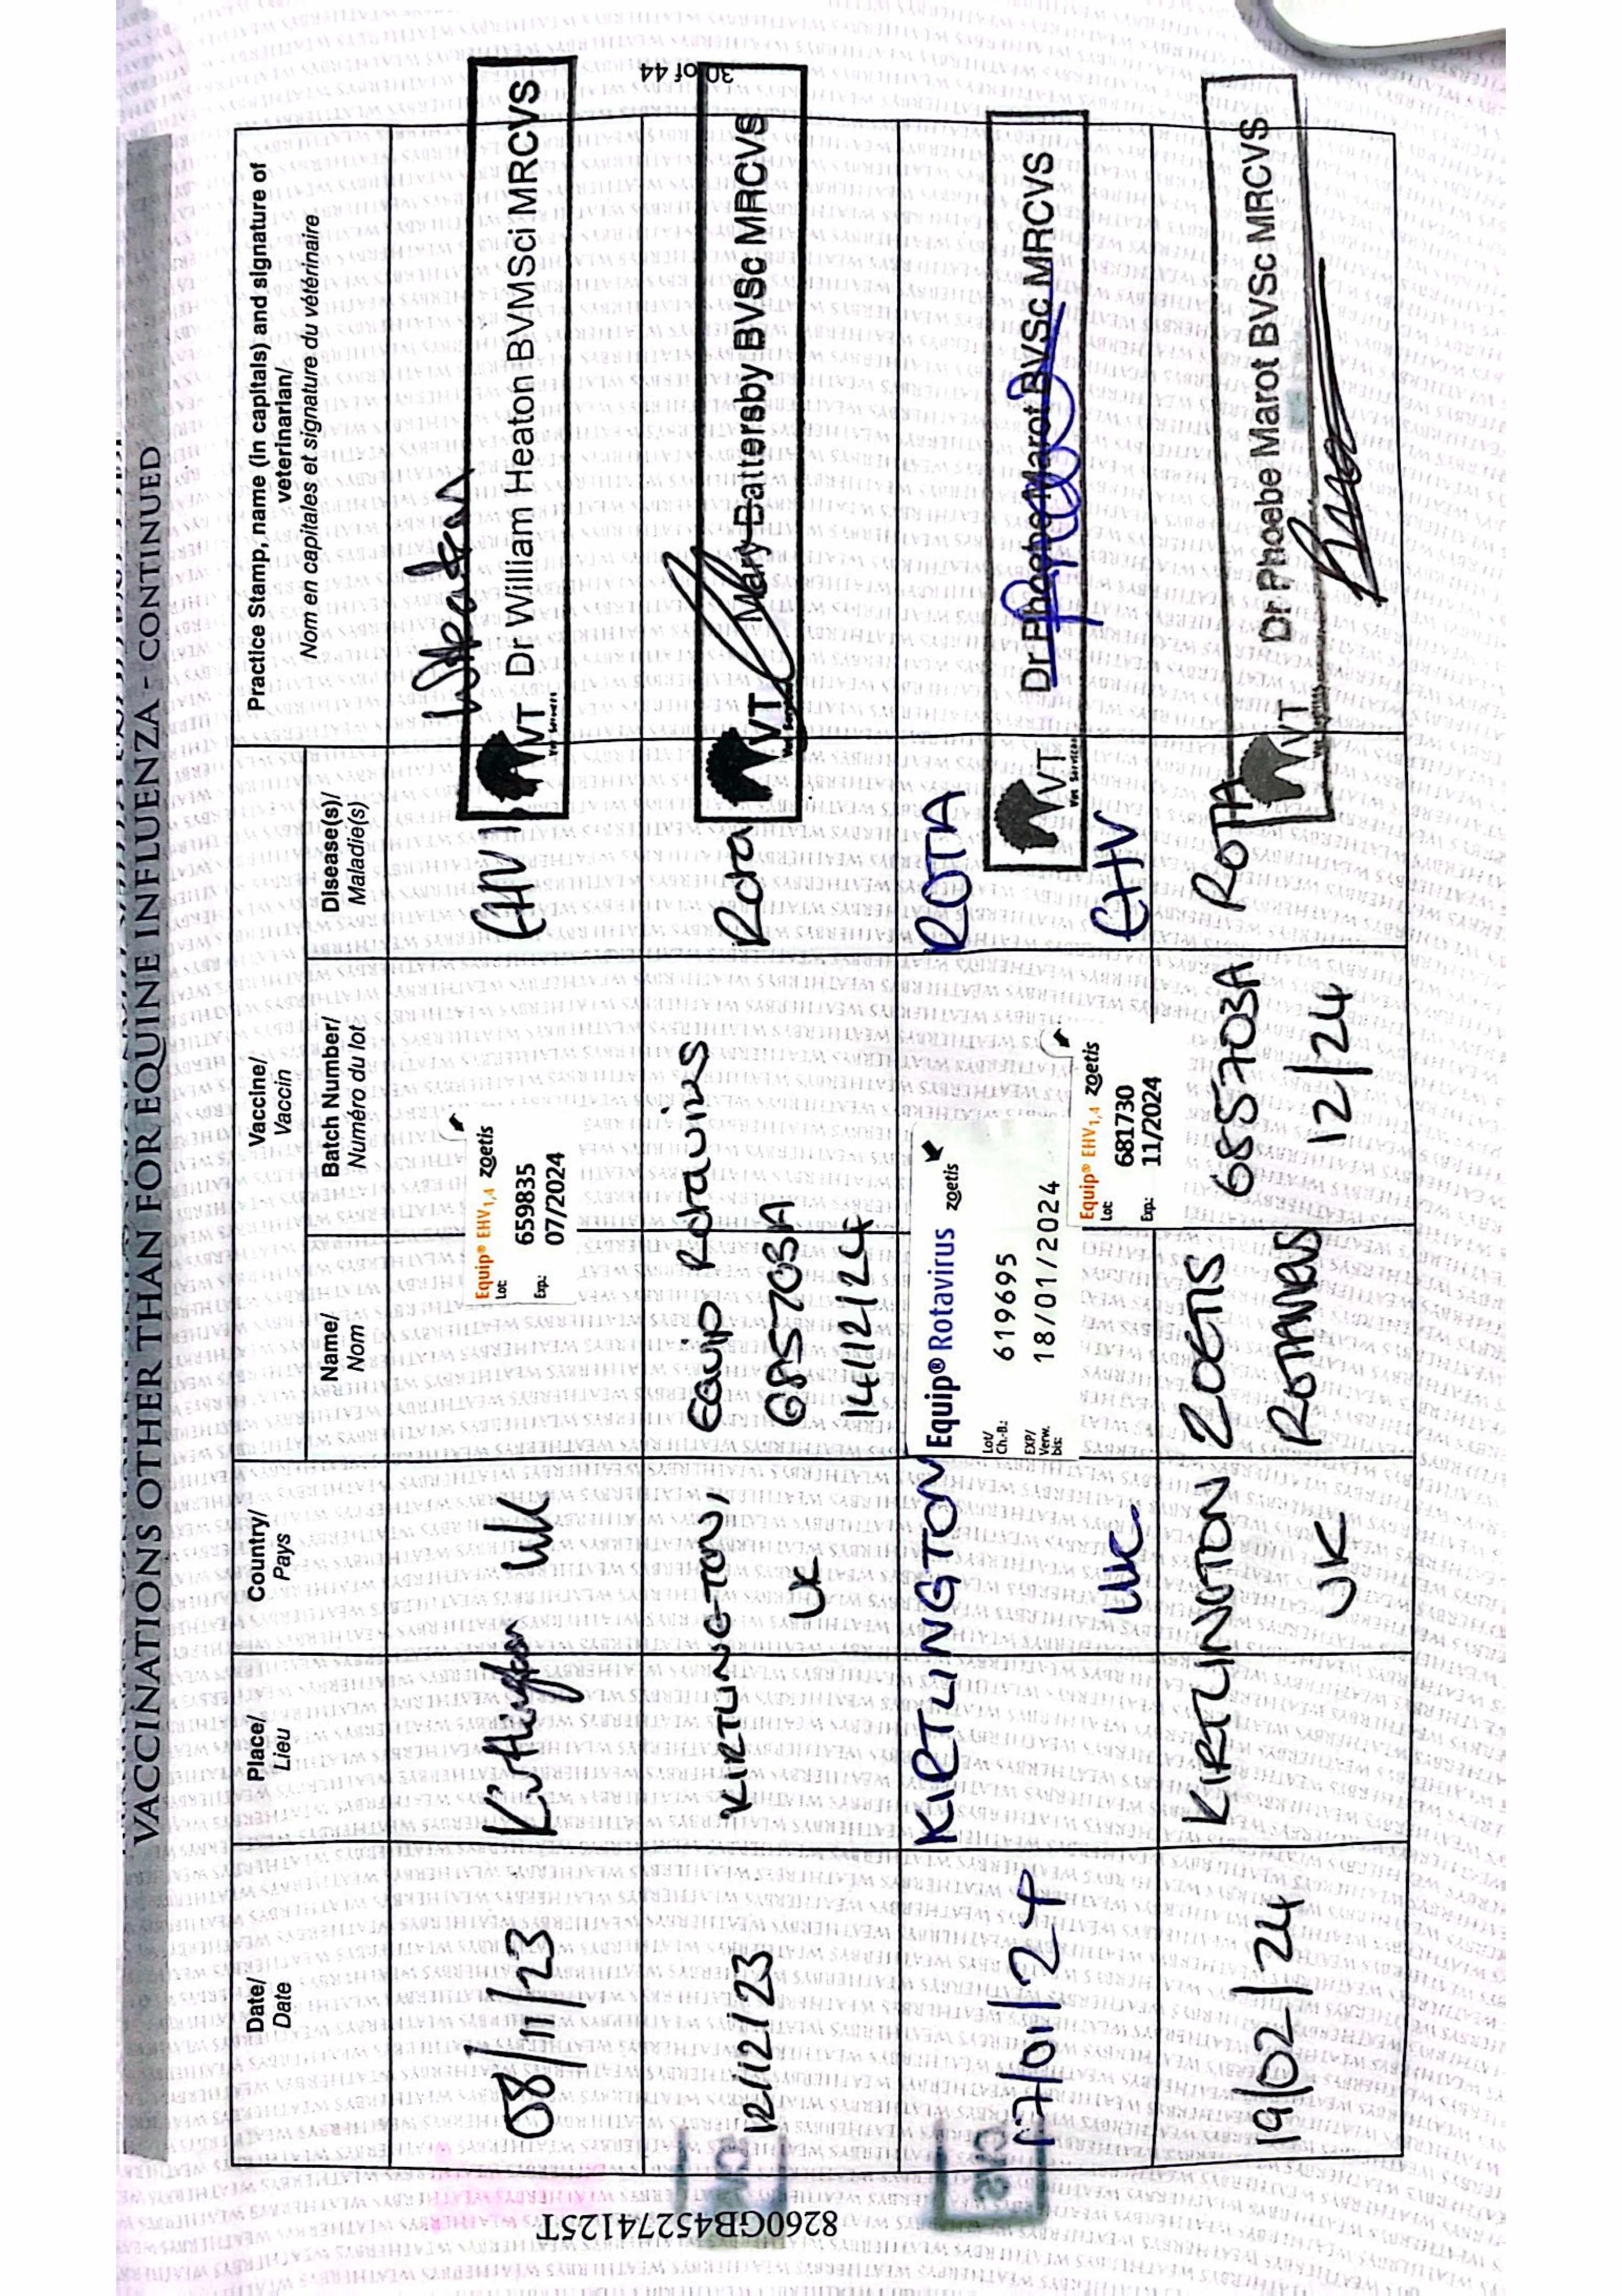 VACCINATIONS OTHER THAN FOR EQUINE INFLUENZA - CONTINUED
Date/
Date
Place/
Lieu
Country/
Pays
Vaccine/
Vaccin
Name/
Nom
Batch Number/
Numéro du lot
Disease(s)/
Maladie(s)
Practice Stamp, name (in capitals) and signature of
veterinarian/
Nom en capitales et signature du vétérinaire
08/11/23
Kirtlington
UK
Equip® EHV1,4 zoetis
Lot: 659835
Exp.: 07/2024
EHV 1
WHeaton
VT
Vet Services
Dr William Heaton BVMSci MRCVS
12/12/23
KIRTLINGTON,
UK
Equip Rotavirus
685703A
14/12/24
Rota
VT
Vet Services
Mary Battersby BVSc MRCVS
17/01/24
KIRTLINGTON
UK
Equip® Rotavirus zoetis
Lot/
Ch.-B.: 619695
EXP/
Verw.
bis: 18/01/2024
Equip® EHV1,4 zoetis
Lot: 681730
Exp.: 11/2024
ROTA
EHV
VT
Vet Services
Dr Phoebe Marot BVSc MRCVS
19/02/24
KIRTLINGTON
UK
ZOETIS
ROTAVIRUS
685703A
12/24
ROTA
VT
Dr Phoebe Marot BVSc MRCVS
30 of 44
8260GB45274125T
WEATHERBYS WEATHERBYS WEATHERBYS